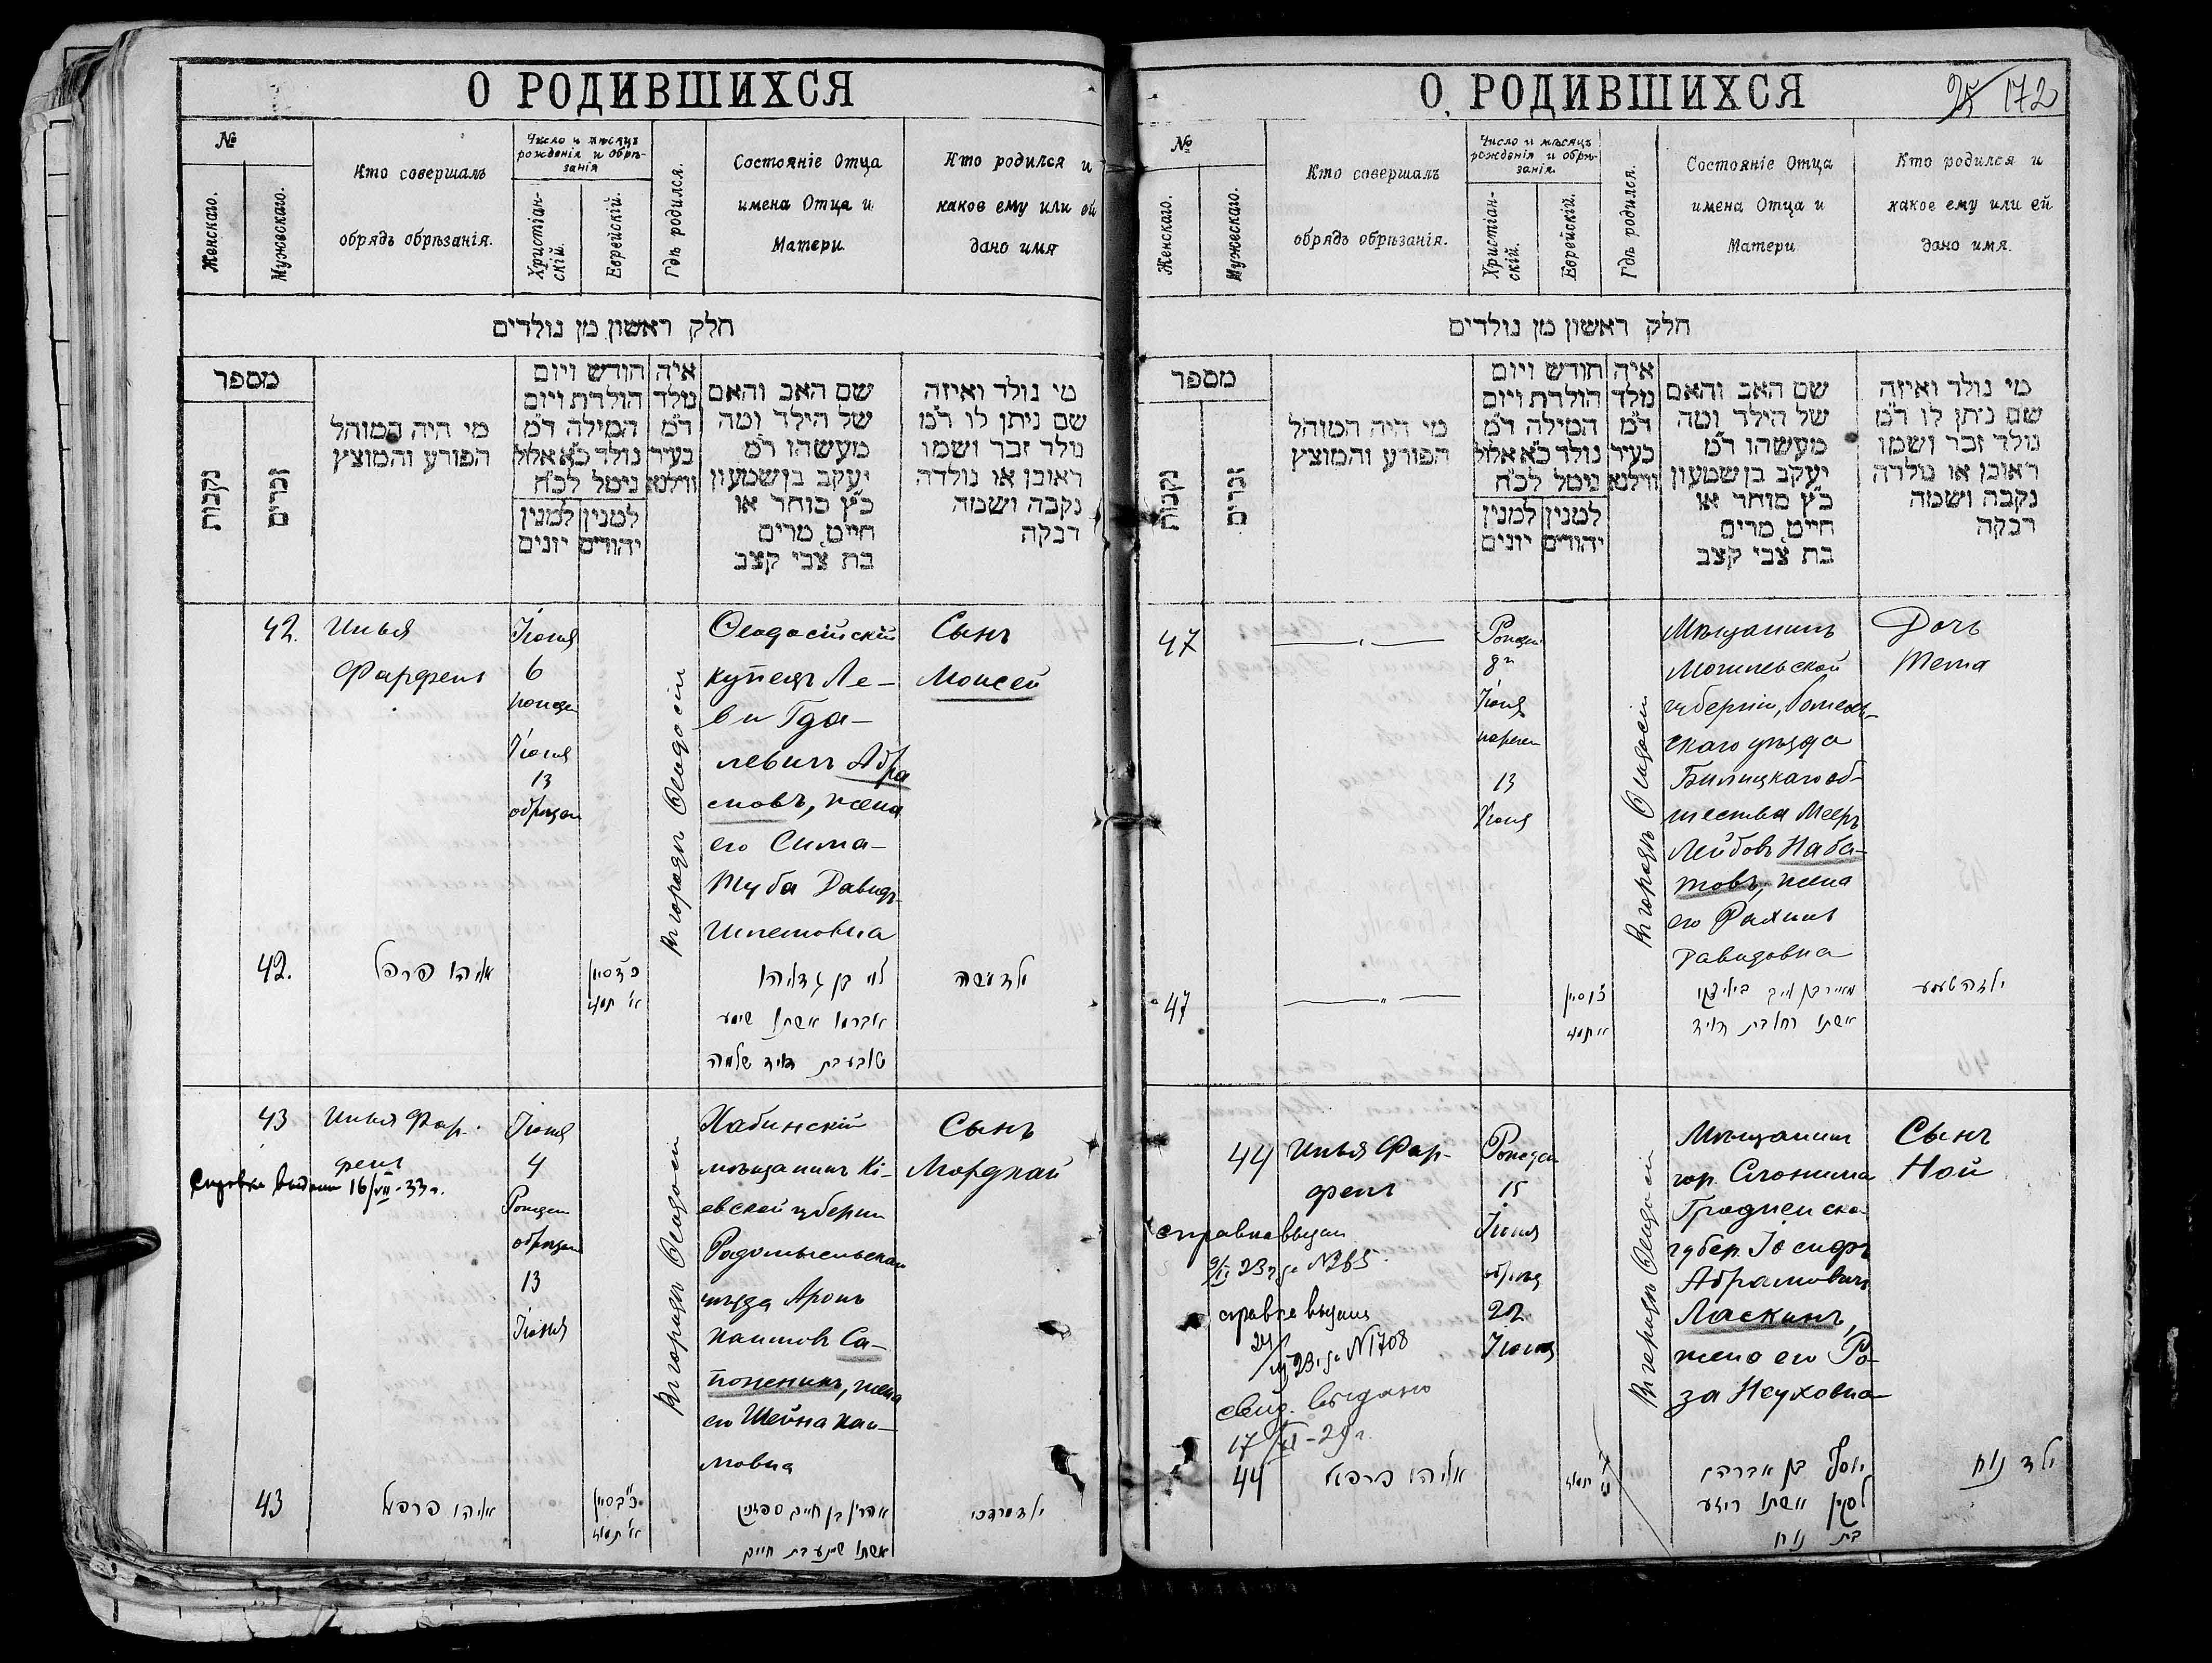 О РОДИВШИХСЯ
№
Женскаго.
Мужескаго.
Кто совершалъ
обрядъ обрѣзанія.
Число и мѣсяцъ
рожденія и обрѣ-
занія
Христіан-
скій.
Еврейскій.
Гдѣ родился.
Состояніе Отца
имена Отца и
Матери
Кто родился и
какое ему или ей
дано имя
חלק ראשון מן נולדים
מספר
נקבות
זכרים
מי היה המוהל
הפורע והמוצץ
חודש ויום
הולדת ויום
המילה ד״מ
נולד כ״א אלול
נימל לכ״ח
למנין למנין
יהודים יונים
איה
נולד
ד״מ
בעיר
ווילנא
שם האב והאם
של הילד ומה
מעשהו ד״מ
יעקב בן שמעון
כ״ץ סוחר או
חייט, מרים
בת צבי קצב
מי נולד ואיזה
שם ניתן לו ד״מ
נולד זכר ושמו
ראובן או נולדה
נקבה ושמה
רבקה
42.
Илья
Фарфель
Іюня
6
рожден
Іюня
13
обрѣзан
Въ городѣ Ѳеодосіи
Ѳеодосійскій
купецъ Ле-
ви Гда-
левичъ Абра
мовъ, жена
его Сима-
Туба Давидъ
Шлемовна
Сынъ
Моисей
42.
אליהו פרפל
לוי בן גדליהו
אברמוו אשתו סימע
טובע בת דויד שלמה
ילד משה
43
Илья Фар-
фель
Справка выдана 16/VII-33 г.
Іюня
4
Рожден
обрѣзан
13
Іюня
Въ городѣ Ѳеодосіи
Хабинскій
мѣщанинъ Кі-
евской губерніи
Радомысльскаго
уѣзда Аронъ
Хаимовъ Са-
поженикъ, жена
его Шейна Хаи-
мовна
Сынъ
Мордхай
43
אליהו פרפל
אהרן בן חיים
אשתו שיינע בת חיים
ילד מרדכי
О РОДИВШИХСЯ
25 172
№
Женскаго.
Мужескаго.
Кто совершалъ
обрядъ обрѣзанія.
Число и мѣсяцъ
рожденія и обрѣ-
занія.
Христіан-
скій.
Еврейскій.
Гдѣ родился.
Состояніе Отца
имена Отца и
Матери
Кто родился и
какое ему или ей
дано имя.
חלק ראשון מן נולדים
מספר
נקבות
זכרים
מי היה המוהל
הפורע והמוצץ
חודש ויום
הולדת ויום
המילה ד״מ
נולד כ״א אלול
נימל לכ״ח
למנין למנין
יהודים יונים
איה
נולד
ד״מ
בעיר
ווילנא
שם האב והאם
של הילד ומה
מעשהו ד״מ
יעקב בן שמעון
כ״ץ סוחר או
חייט, מרים
בת צבי קצב
מי נולד ואיזה
שם ניתן לו ד״מ
נולד זכר ושמו
ראובן או נולדה
נקבה ושמה
רבקה
47
— „ —
Рожден
8го
Іюня
наречен
13
Іюня
Въ городѣ Ѳеодосіи
Мѣщанинъ
Могилевской
губерніи, Гомель-
скаго уѣзда
Билицкаго об-
щества Мееръ
Лейбовъ Наба-
товъ, жена
его Рахиль
Давидовна
Дочь
Тема
47
— „ —
אשתו רחל בת דויד
ילדה טעמע
44
Илья Фар-
фель
справка выдан
9/II 23 г. за №265
справка выдана
23 г. за №1708
свид. выдано
17/XI-29 г.
Рожден
15
Іюня
обрѣза
22
Іюня
Въ городѣ Ѳеодосіи
Мѣщанинъ
гор. Слонима
Гродненско
губер. Іосифъ
Абрамовичъ
Ласкинъ,
жена его Ро-
за Неуховна
Сынъ
Ной
44
אליהו פרפל
יוסף בן אברהם
לסקין אשתו רייזע
בת נוח
ילד נוח